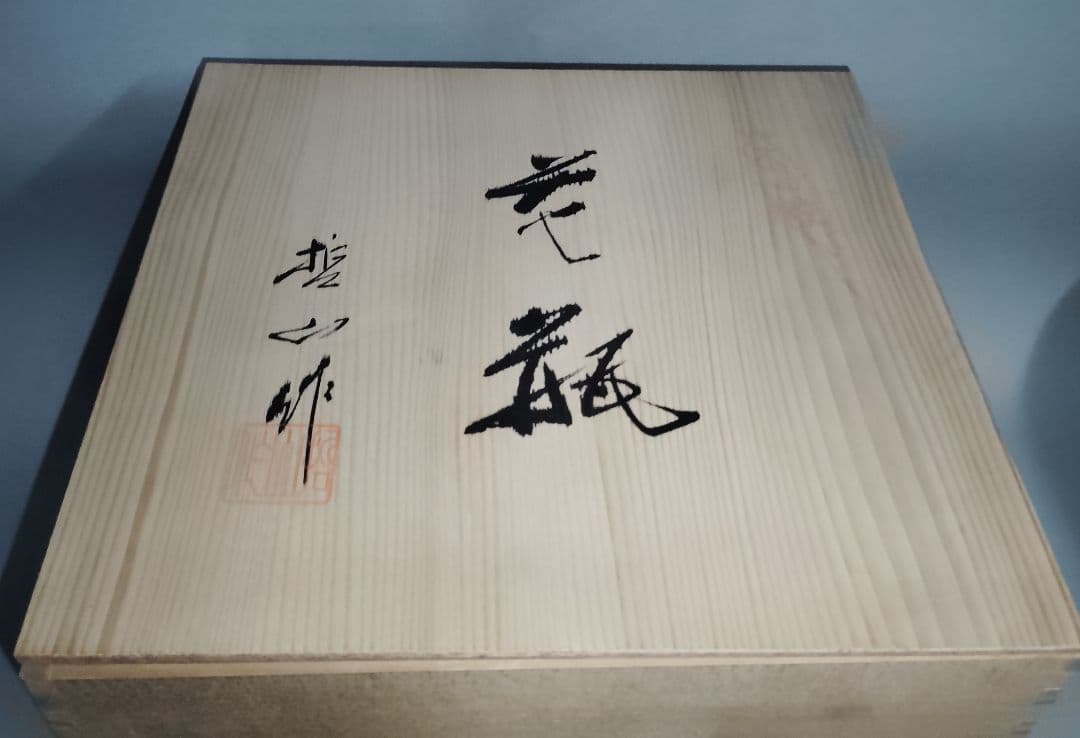 花瓶
哲山作